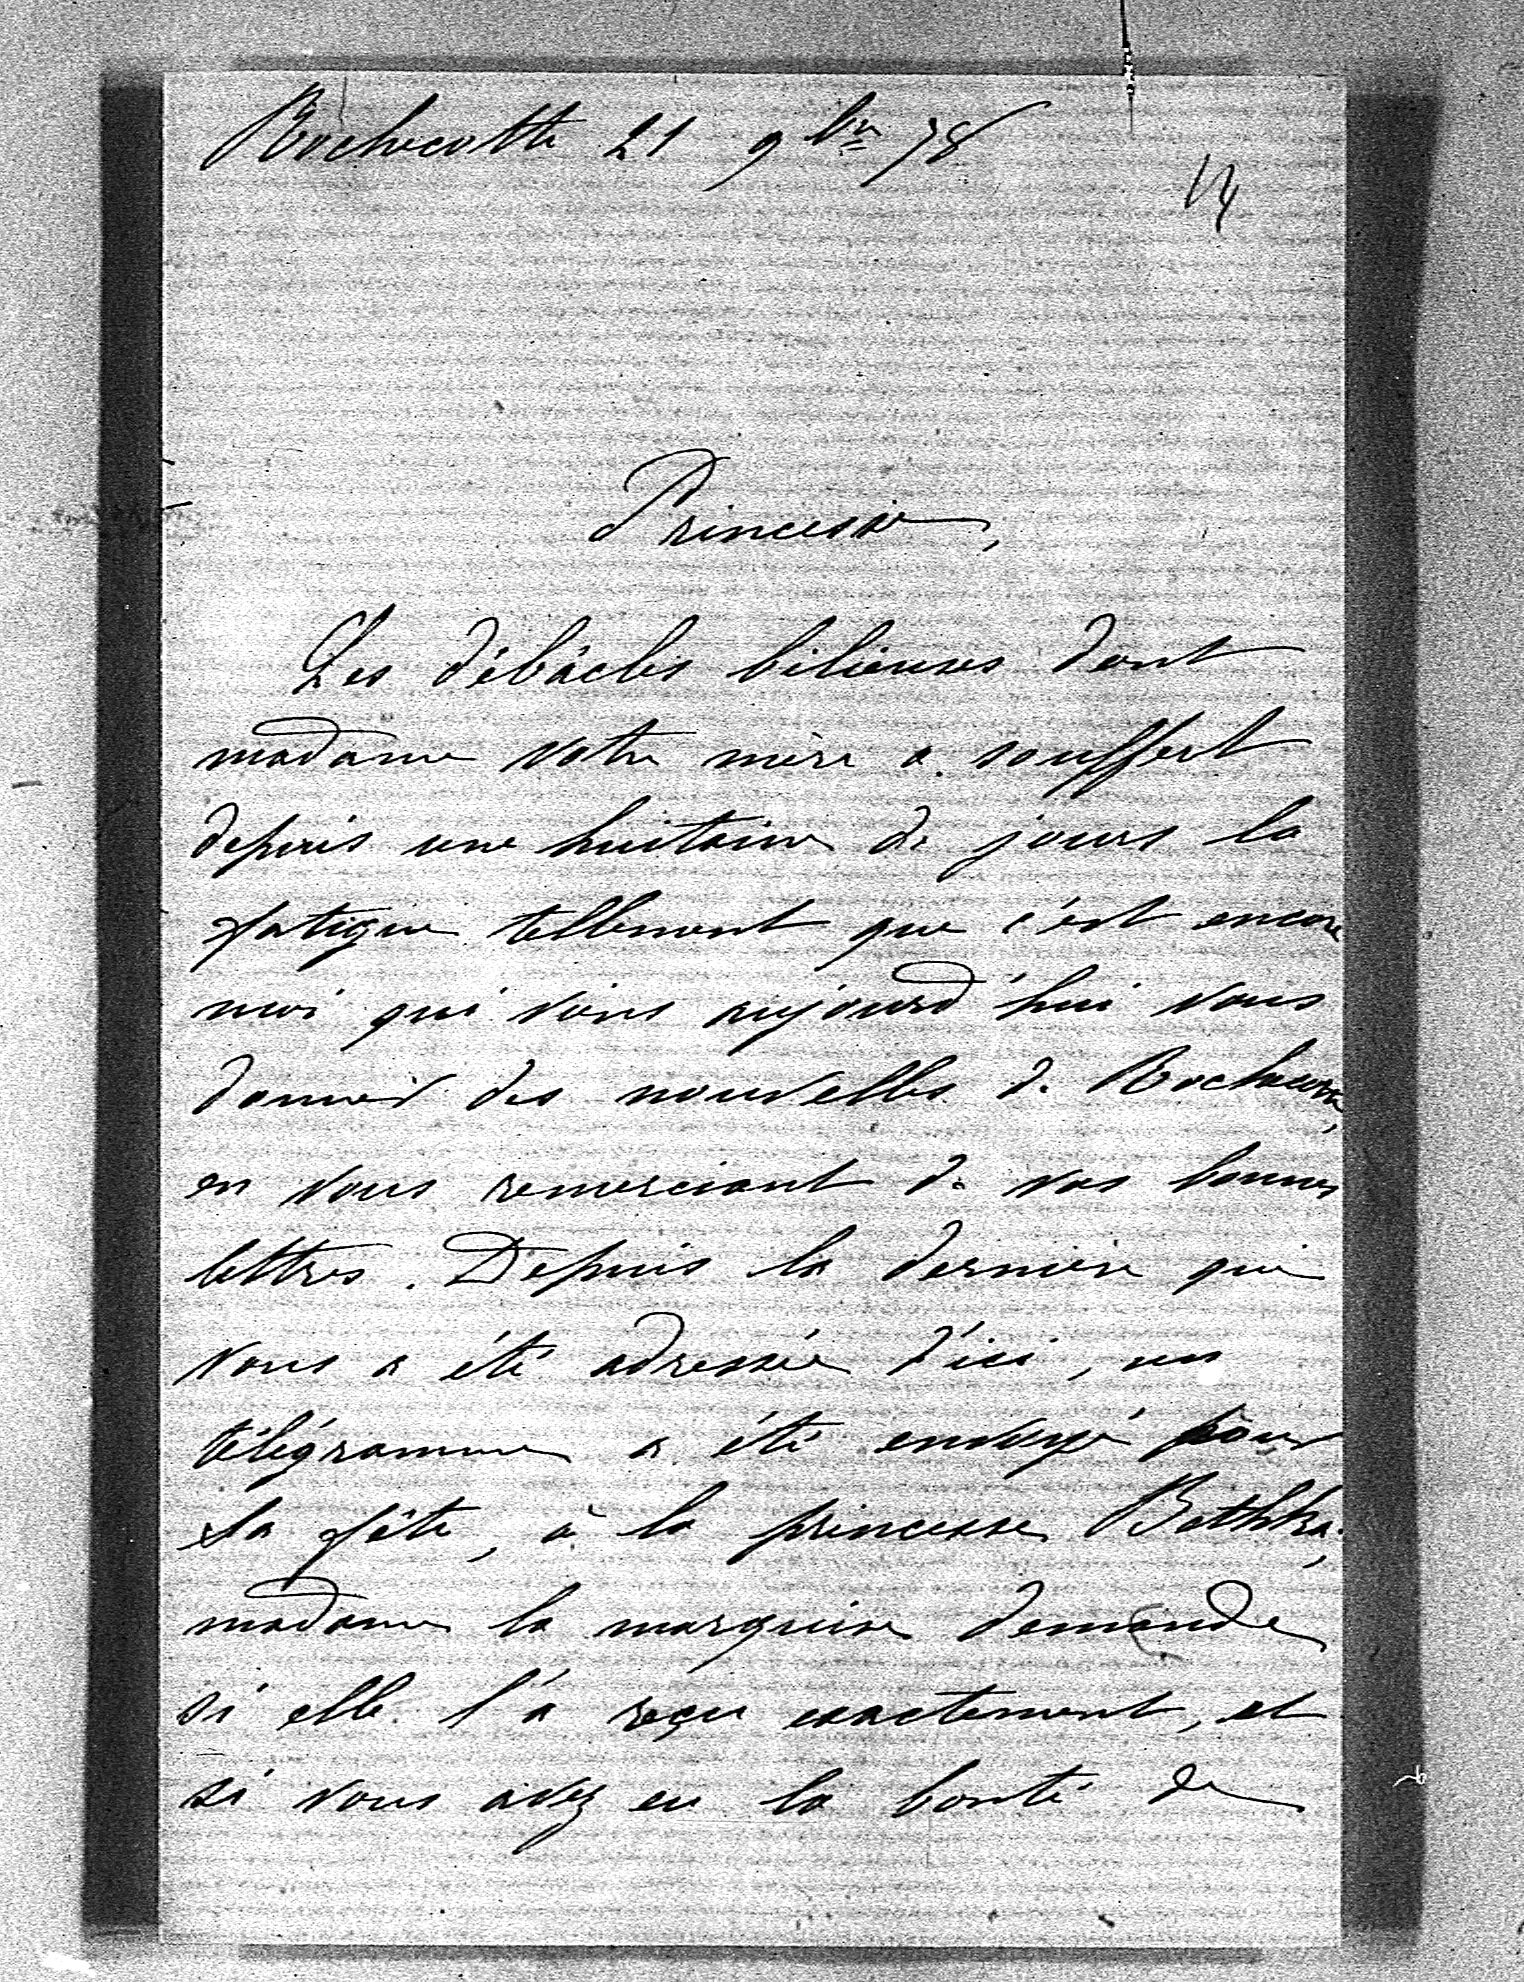 Rochecotte 21 9bre 78
Princesse,
Les débâcles bilieuses dont
madame votre mère a souffert
depuis une huitaine de jours la
fatigue tellement que c'est encore
moi qui viens aujourd'hui vous
donner des nouvelles de Rochecotte,
en vous remerciant de vos bonnes
lettres. Depuis la dernière qui
vous a été adressée d'ici, un
télégramme a été envoyé pour
sa fête, à la princesse Bethka,
madame la marquise demande
si elle l'a reçu exactement, et
si vous avez eu la bonté de